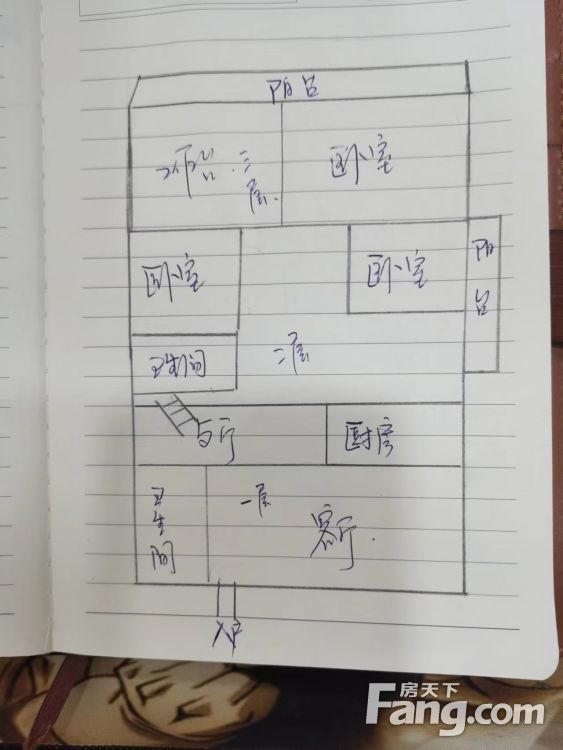 阳台
三层.
卧室
卧室
卧室
阳台
卫生间
二层
厨房
卫生间
一层
客厅.
入户
房天下
Fang.com